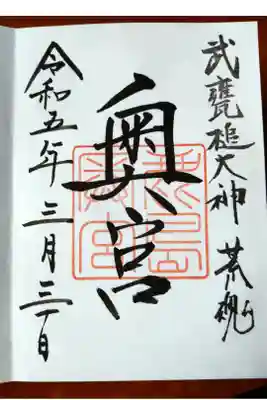 武甕槌大神 荒魂
奥宮
令和五年三月三十日